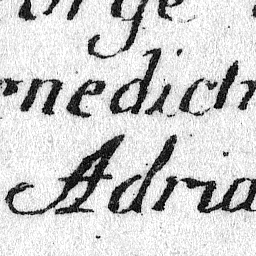 orge
enedictn
Adria